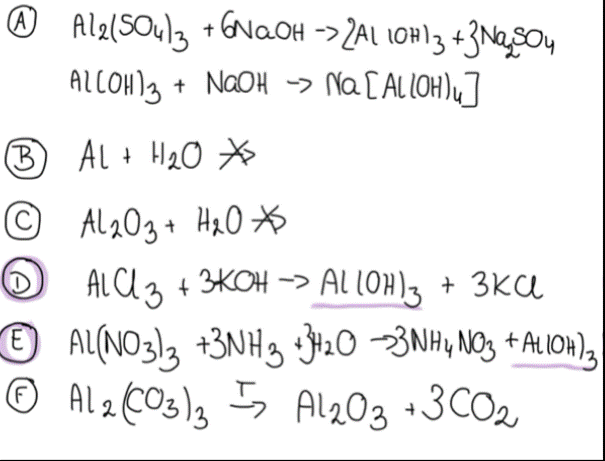 A Al₂(SO₄)₃ + 6NaOH -> 2Al(OH)₃ + 3Na₂SO₄
Al(OH)₃ + NaOH -> Na[Al(OH)₄]
B Al + H₂O ↛
C Al₂O₃ + H₂O ↛
D AlCl₃ + 3KOH -> Al(OH)₃ + 3KCl
E Al(NO₃)₃ + 3NH₃ + 3H₂O -> 3NH₄NO₃ + Al(OH)₃
F Al₂(CO₃)₃ T-> Al₂O₃ + 3CO₂